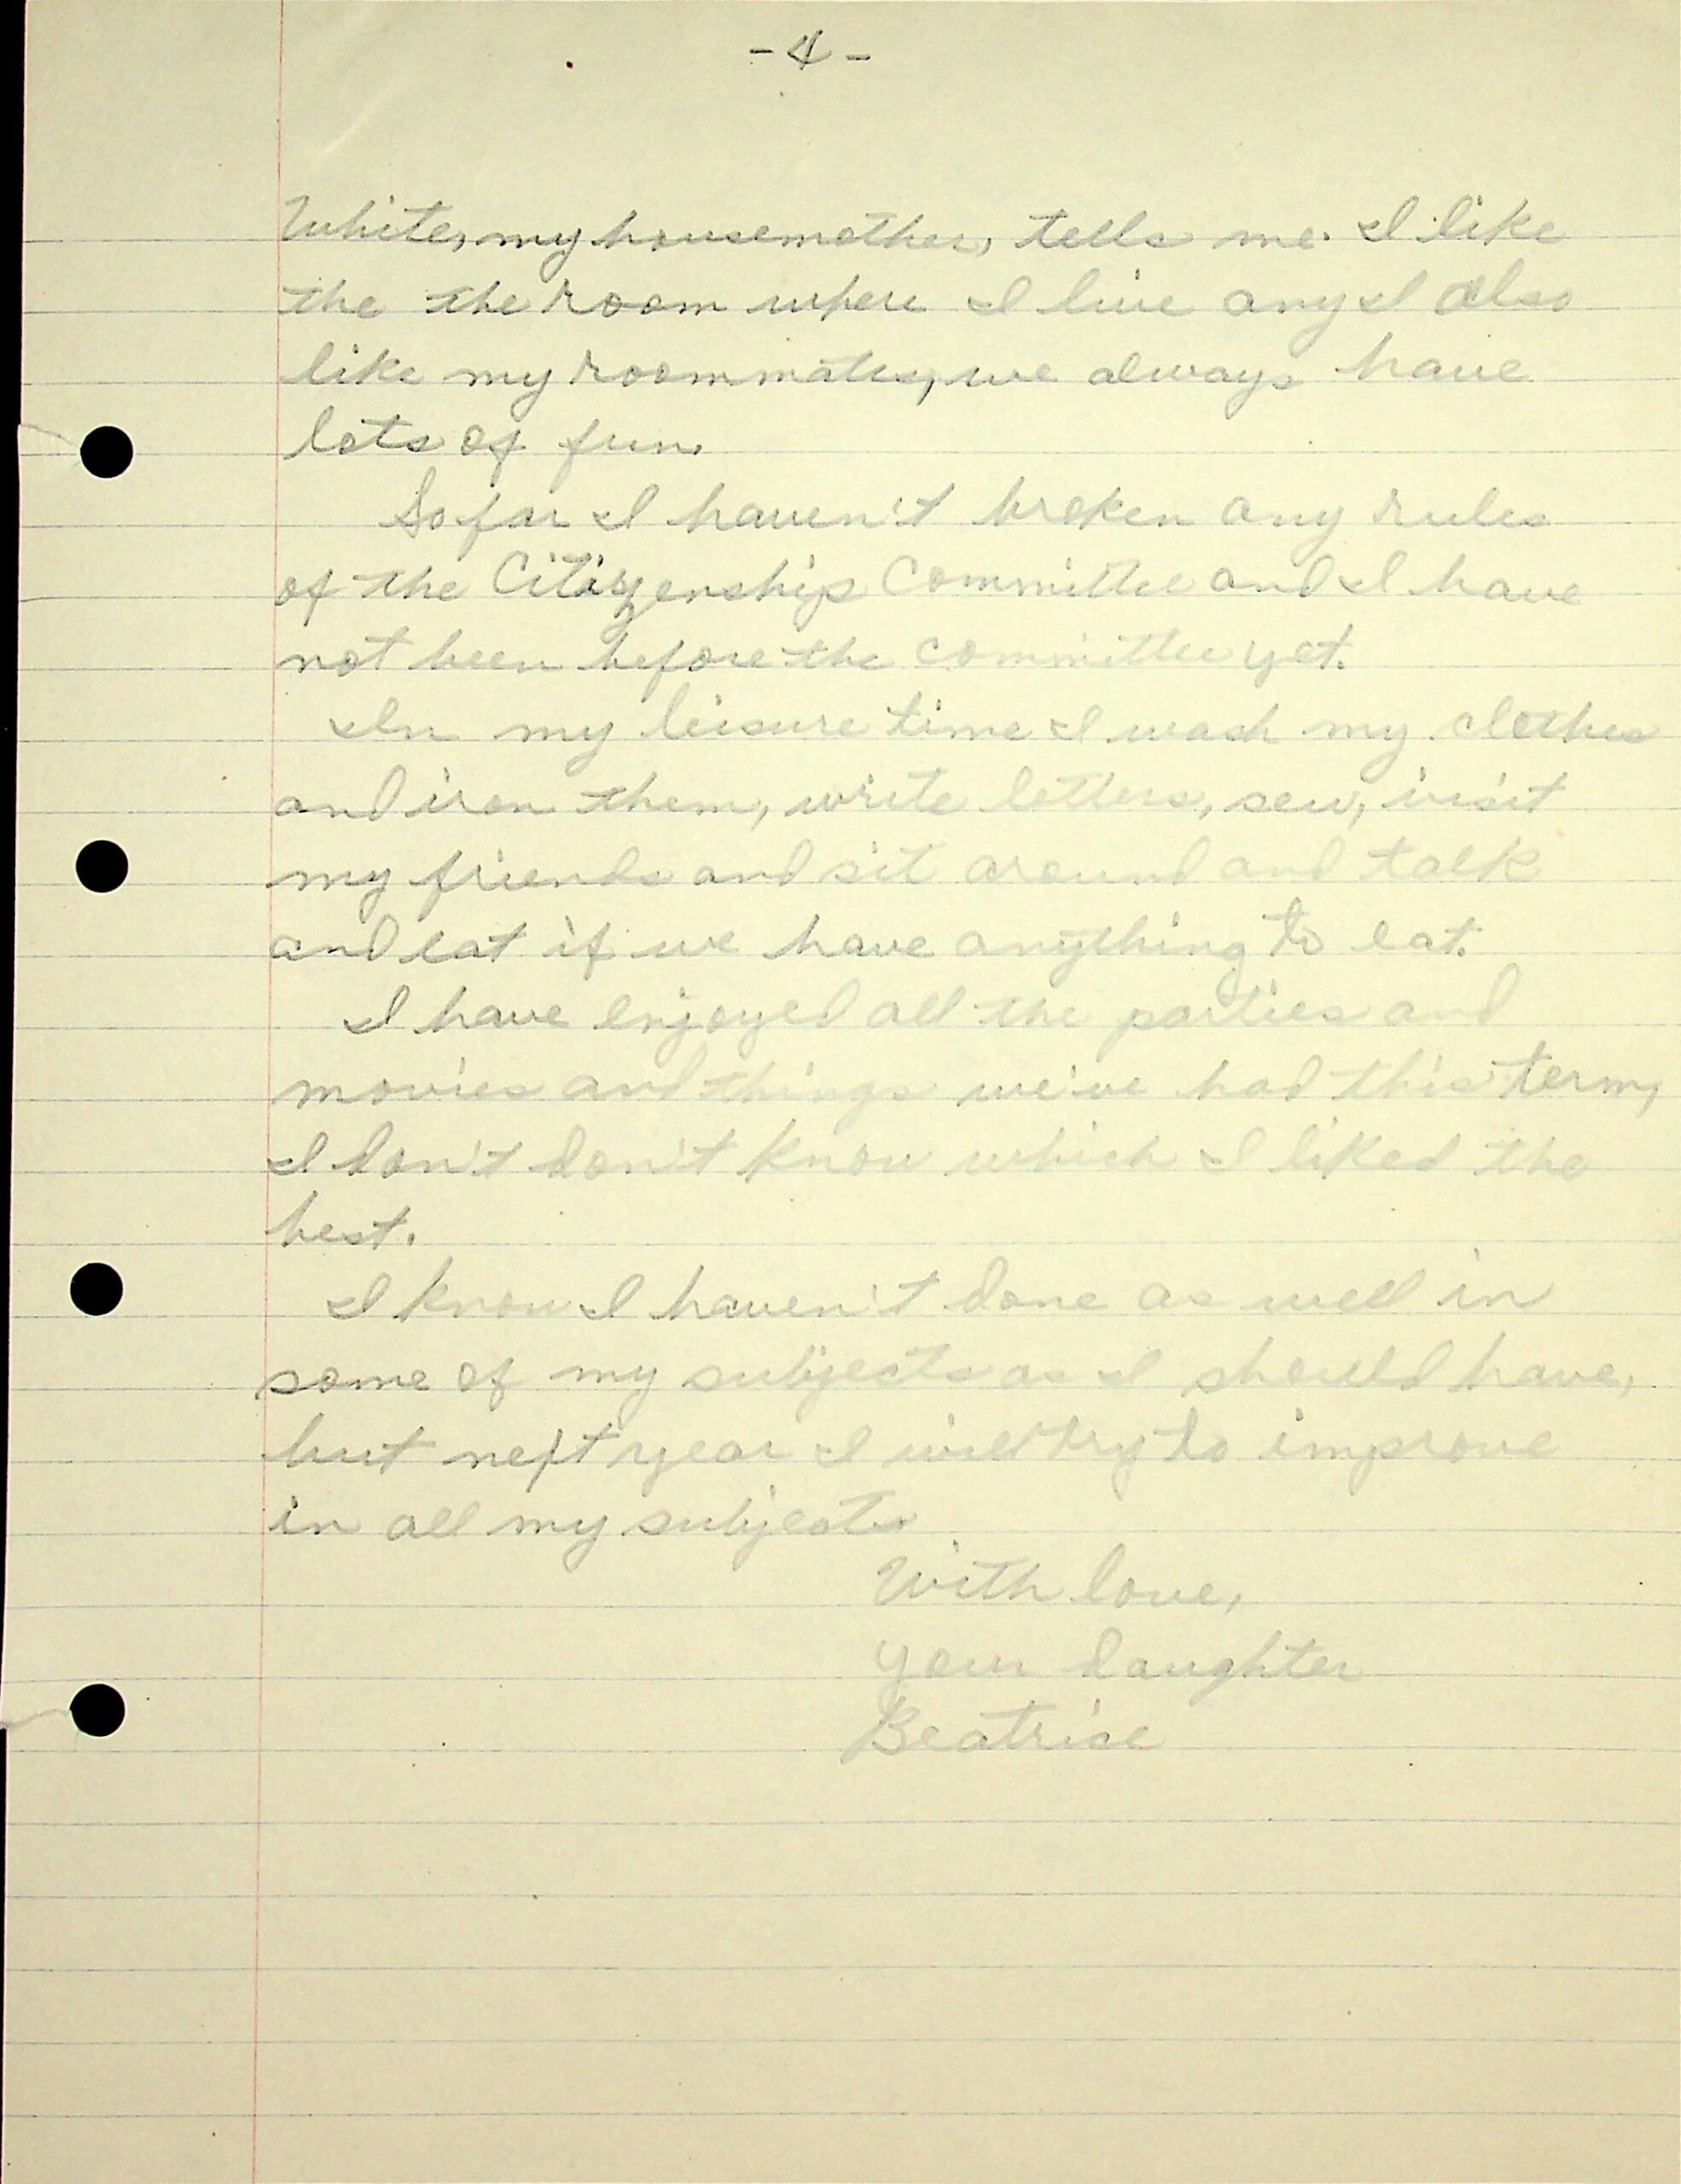 - 4 -
White, my housemother, tells me. I like
the the room where I live any I also
like my roommates, we always have
lots of fun.
So far I haven't broken any rules
of the Citizenship Committee and I have
not been before the committee yet.
In my leisure time I wash my clothes
and iron them, write letters, sew, visit
my friends and sit around and talk
and eat if we have anything to eat.
I have enjoyed all the parties and
movies and things we've had this term,
I don't don't know which I liked the
best.
I know I haven't done as well in
some of my subjects as I should have,
but next year I will try to improve
in all my subjects
With love,
your daughter
Beatrice